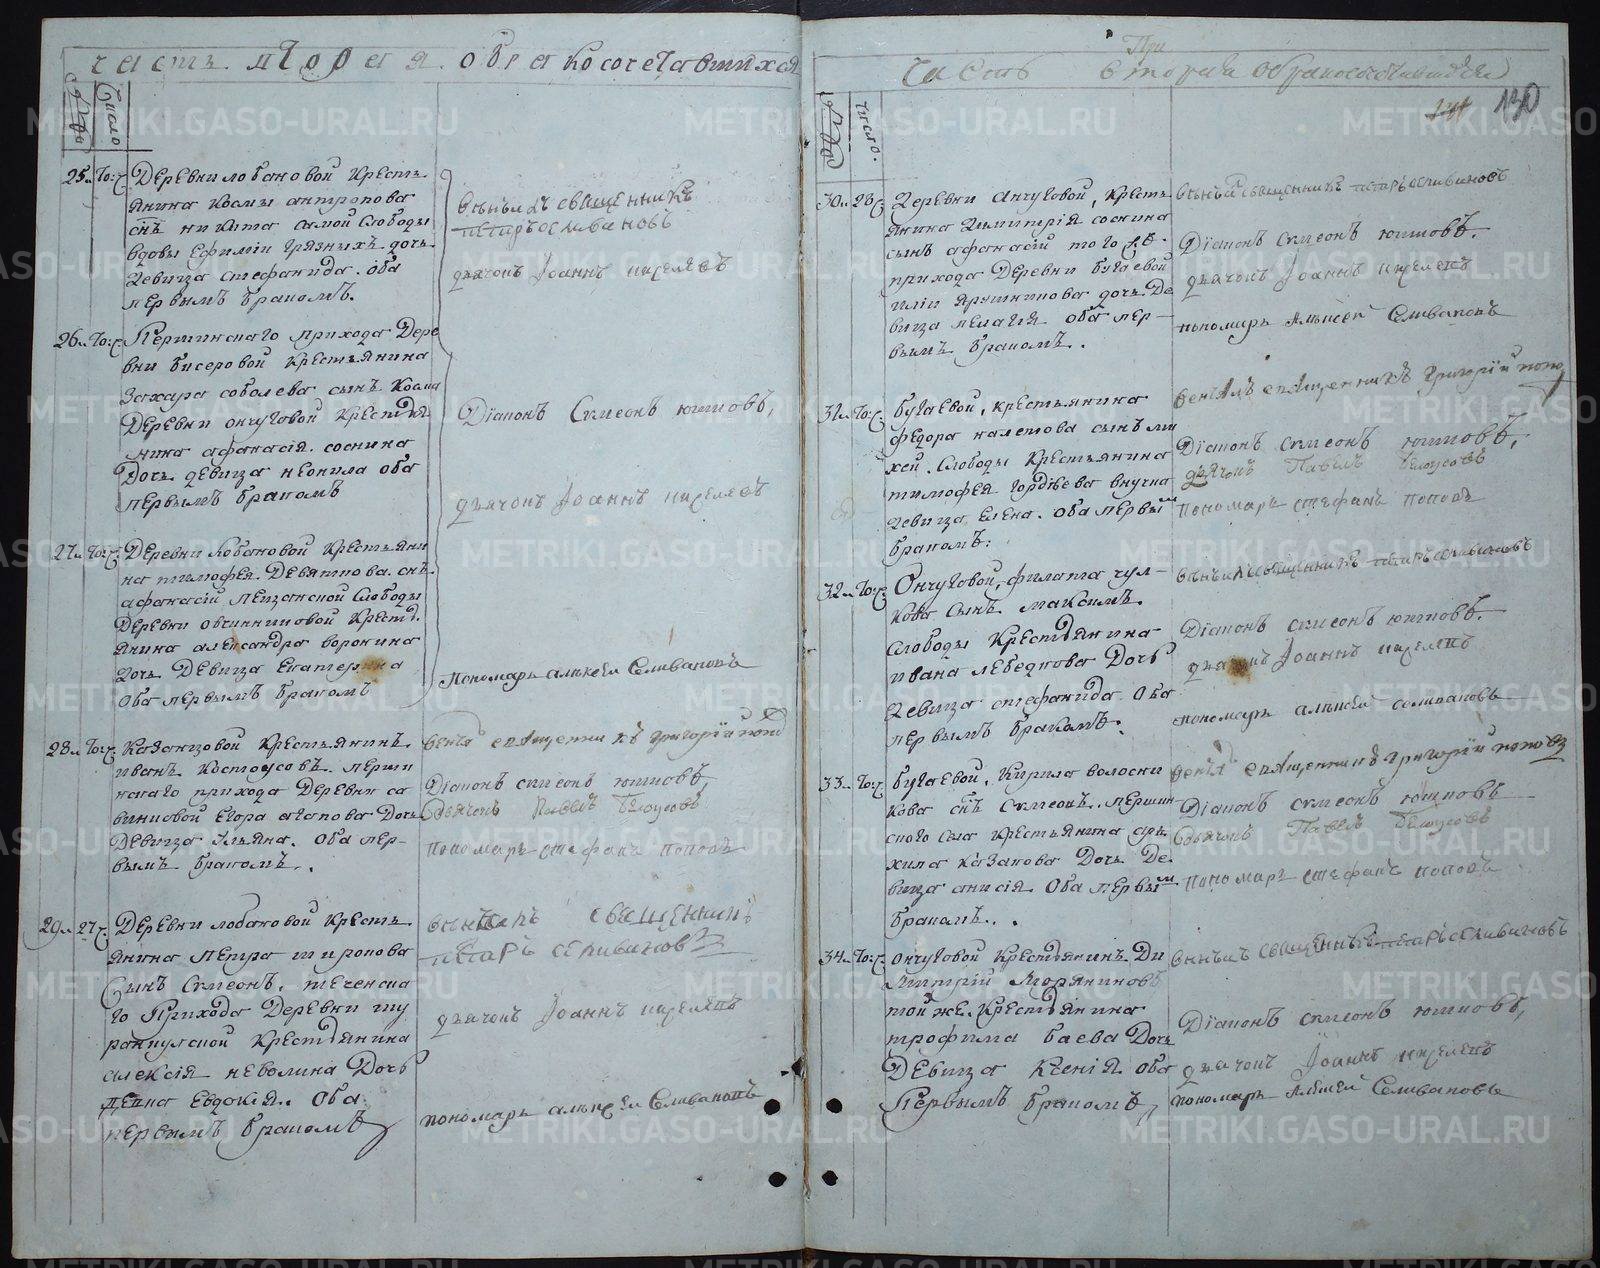 часть вторая о бракосочетавшихся
число
25. То:ж
Деревни лобановой Крестъ
янина Козмы антропова
снъ никита самой Слободы
вдовы Ефиміи грязныхъ дочь
Девица стефанида. оба
первымъ бракомъ.
вѣнчалъ священникъ
петръ селивановъ
дьячокъ Іоаннъ киселевъ
26. То:ж
Першинскаго прихода Дере
вни бисеровой Крестьянина
Захара соболева сынъ Козма
Деревни ончуговой Крестья
нина афанасія соснина
Дочь девица неонила оба
первымъ бракомъ
Діаконъ Сѵмеонъ юшковъ,
дьячокъ Іоаннъ киселевъ
27. То:ж
Деревни лобановой Крестьяни
на тимофея Девяткова снъ
афанасій Слободы
Деревни овчинниковой Крест
янина александра воронина
Дочь Девица Екатерина
оба первымъ бракомъ
Пономарь алексей Селивановъ
28. То:ж
Казанцовой Крестьянинъ
иванъ Костоусовъ. перши
нскаго прихода Деревни са
винковой Егора агапова Дочь
Девица Ульяна. Оба пер-
вымъ бракомъ.
священникъ григорій попо
Діаконъ сѵмеонъ юшковъ,
дьячокъ Павелъ Белоусовъ
пономарь стефанъ поповъ
29. 27.
Деревни лобановой Кресть
янина петра широкова
Сынъ Сѵмеонъ. теченска
го Прихода Деревни шу
ранкулской Крестьянина
алексія неволина Дочь
Евдокія.. Оба
первымъ бракомъ
священникъ
петръ селивановъ
дьячокъ Іоаннъ киселевъ
пономарь алексей Селивановъ
часть вторая о бракосочетавшихся
130
число.
30. 28.
Деревни Анчуговой, Кресть
янина Димитрія соснина
сынъ афанасій того жъ
прихода Деревни бугаевой
иліи Ярушникова дочь Де
вица пелагія оба пер-
вымъ бракомъ.
вѣнчалъ священникъ петръ селивановъ
Діаконъ Сѵмеонъ юшковъ.
дьячокъ Іоаннъ киселевъ
пономарь Алексей Селивановъ
31. То:ж
бугаевой, крестьянина
федора налетова сынъ ми
хей. Слободы Крестьянина
тимофея гордѣева внучка
девица Елена. Оба первым
бракомъ:
венчалъ священникъ григорій попо
Діаконъ сѵмеонъ юшковъ,
дьячокъ Павелъ Белоусовъ
пономарь стефанъ поповъ
32. То:ж
Ончуговой, филата чул-
кова Сынъ максимъ.
слободы Крестьянина
ивана лебедкова Дочь
Девица стефанида. Оба
первымъ бракомъ.
вѣнчалъ священникъ петръ селивановъ
Діаконъ сѵмеонъ юшковъ.
дьячокъ Іоаннъ киселевъ
пономарь алексей селивановъ
33. То:ж
бугаевой, Кирила волосни
кова снъ Сѵмеонъ. першин
ского села крестьянина ар
хипа казакова Дочь Де-
вица анисія Оба первым
бракомъ..
священникъ григорій поповъ
Діаконъ сѵмеонъ юшковъ
дьячокъ Павелъ Белоусовъ
пономарь стефанъ поповъ
34. То:ж
ончуговой Крестьянинъ Ди
митрій
той же. Крестьянина
трофима баева Дочь
Девица Ксенія Оба
Первымъ бракомъ
вѣнчалъ священникъ петръ селивановъ
Діаконъ сѵмеонъ юшковъ,
дьячокъ Іоаннъ киселевъ
пономарь Алексей Селивановъ
METRIKI.GASO-URAL.RU